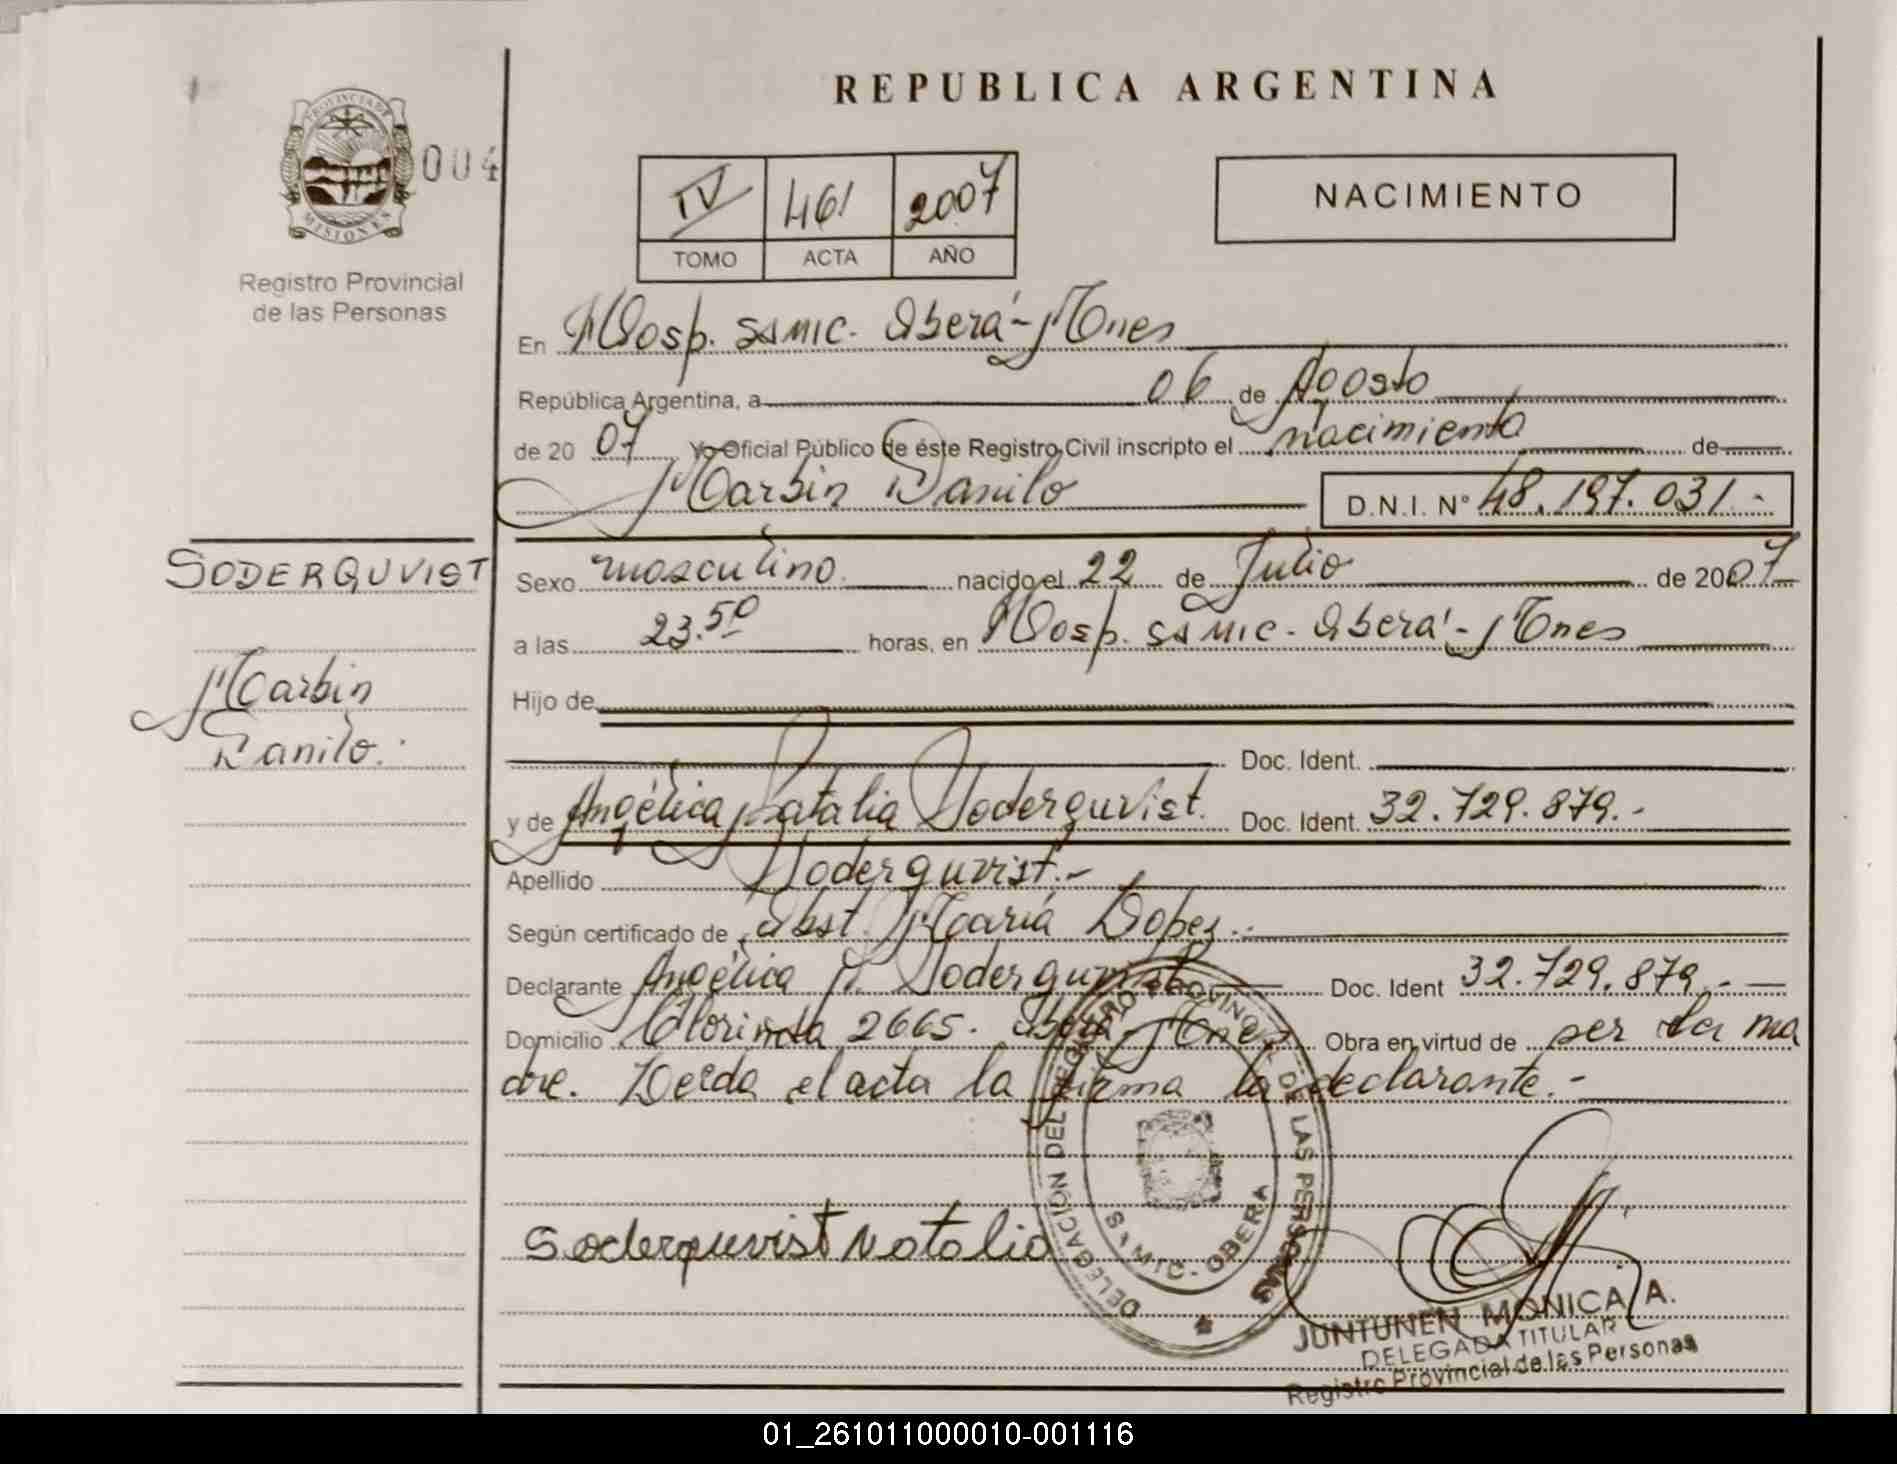 REPUBLICA ARGENTINA
PROVINCIA DE
MISIONES
004
Registro Provincial
de las Personas
IV 461 2007
TOMO ACTA AÑO
NACIMIENTO
En Hosp. SAMIC. Oberá-Mnes
República Argentina, a 06 de Agosto
de 2007 Yo Oficial Público de éste Registro Civil inscripto el nacimiento de
Marbin Danilo D.N.I. Nº 48.197.031.-
SODERQUVIST
Marbin
Danilo.
Sexo masculino nacido el 22 de Julio de 2007
a las 23.50 horas, en Hosp. SAMIC. Oberá-Mnes
Hijo de
Doc. Ident.
y de Angélica Natalia Soderquvist. Doc. Ident. 32.729.879.-
Apellido Soderquvist.-
Según certificado de Obst. María Lopez.-
Declarante Angélica N. Soderquvist Doc. Ident 32.729.879.-
Domicilio Clorinda 2665. Oberá-Mnes Obra en virtud de ser la ma
dre. Leida el acta la firma la declarante.-
Soderquvist Natalia
DELEGACIÓN DEL REGISTRO PROVINCIAL DE LAS PERSONAS
SAMIC - OBERA
JUNTUNEN MONICA A.
DELEGADA TITULAR
Registro Provincial de las Personas
01_261011000010-001116